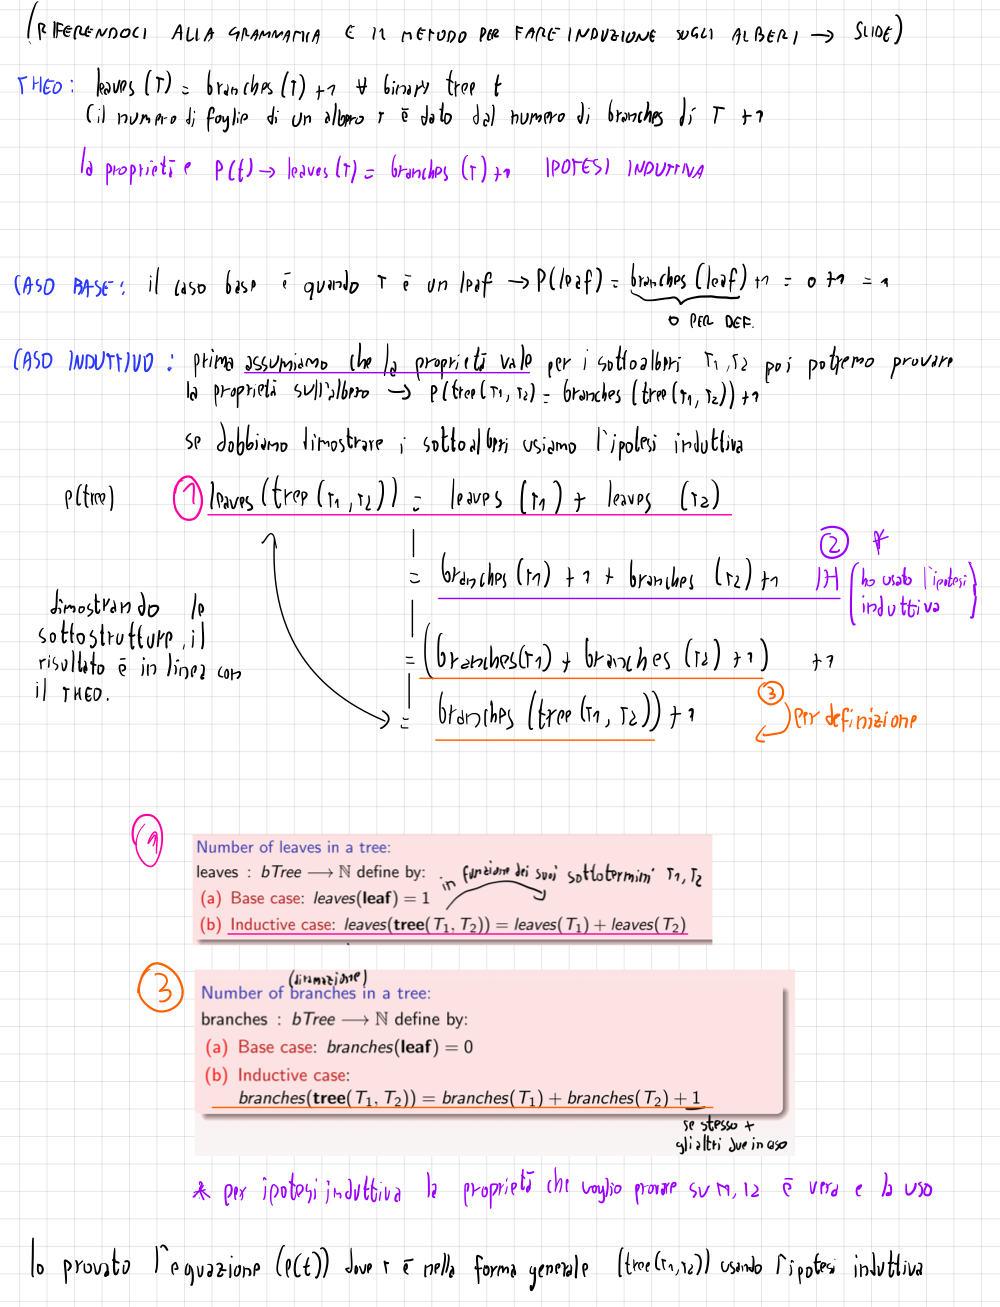 (RIFERENDOCI ALLA GRAMMATICA E IL METODO PER FARE INDUZIONE SUGLI ALBERI → SLIDE)
THEO: leaves (T) = branches (T) +1 ∀ binary tree t
(il numero di foglie di un albero T è dato dal numero di branches di T +1
la proprietà è P(t) → leaves (T) = branches (T) +1 IPOTESI INDUTTIVA
CASO BASE: il caso base è quando T è un leaf → P(leaf) = branches (leaf) +1 = 0 +1 = 1
0 PER DEF.
CASO INDUTTIVO : prima assumiamo che la proprietà vale per i sottoalberi T1, T2 poi potremo provare
la proprietà sull'albero → P(tree(T1, T2)) = branches (tree(T1, T2)) +1
se dobbiamo dimostrare i sottoalberi usiamo l'ipotesi induttiva
P(tree) 1 leaves (tree (T1, T2)) = leaves (T1) + leaves (T2)
= branches (T1) +1 + branches (T2) +1 IH 2 *
(ho usato l'ipotesi
induttiva)
dimostrando le
sottostrutture, il
risultato è in linea con
il THEO.
= (branches(T1) + branches (T2) +1) +1
= branches (tree (T1, T2)) +1
3 per definizione
1
Number of leaves in a tree:
leaves : bTree ⟶ ℕ define by: in funzione dei suoi sottotermini T1, T2
(a) Base case: leaves(leaf) = 1
(b) Inductive case: leaves(tree(T₁, T₂)) = leaves(T₁) + leaves(T₂)
3
(diramazione)
Number of branches in a tree:
branches : bTree ⟶ ℕ define by:
(a) Base case: branches(leaf) = 0
(b) Inductive case:
branches(tree(T₁, T₂)) = branches(T₁) + branches(T₂) + 1
se stesso +
gli altri due in caso
* per ipotesi induttiva la proprietà che voglio provare su T1, T2 è vera e la uso
Io provato l'equazione (P(t)) dove T è nella forma generale (tree(T1,T2)) usando l'ipotesi induttiva